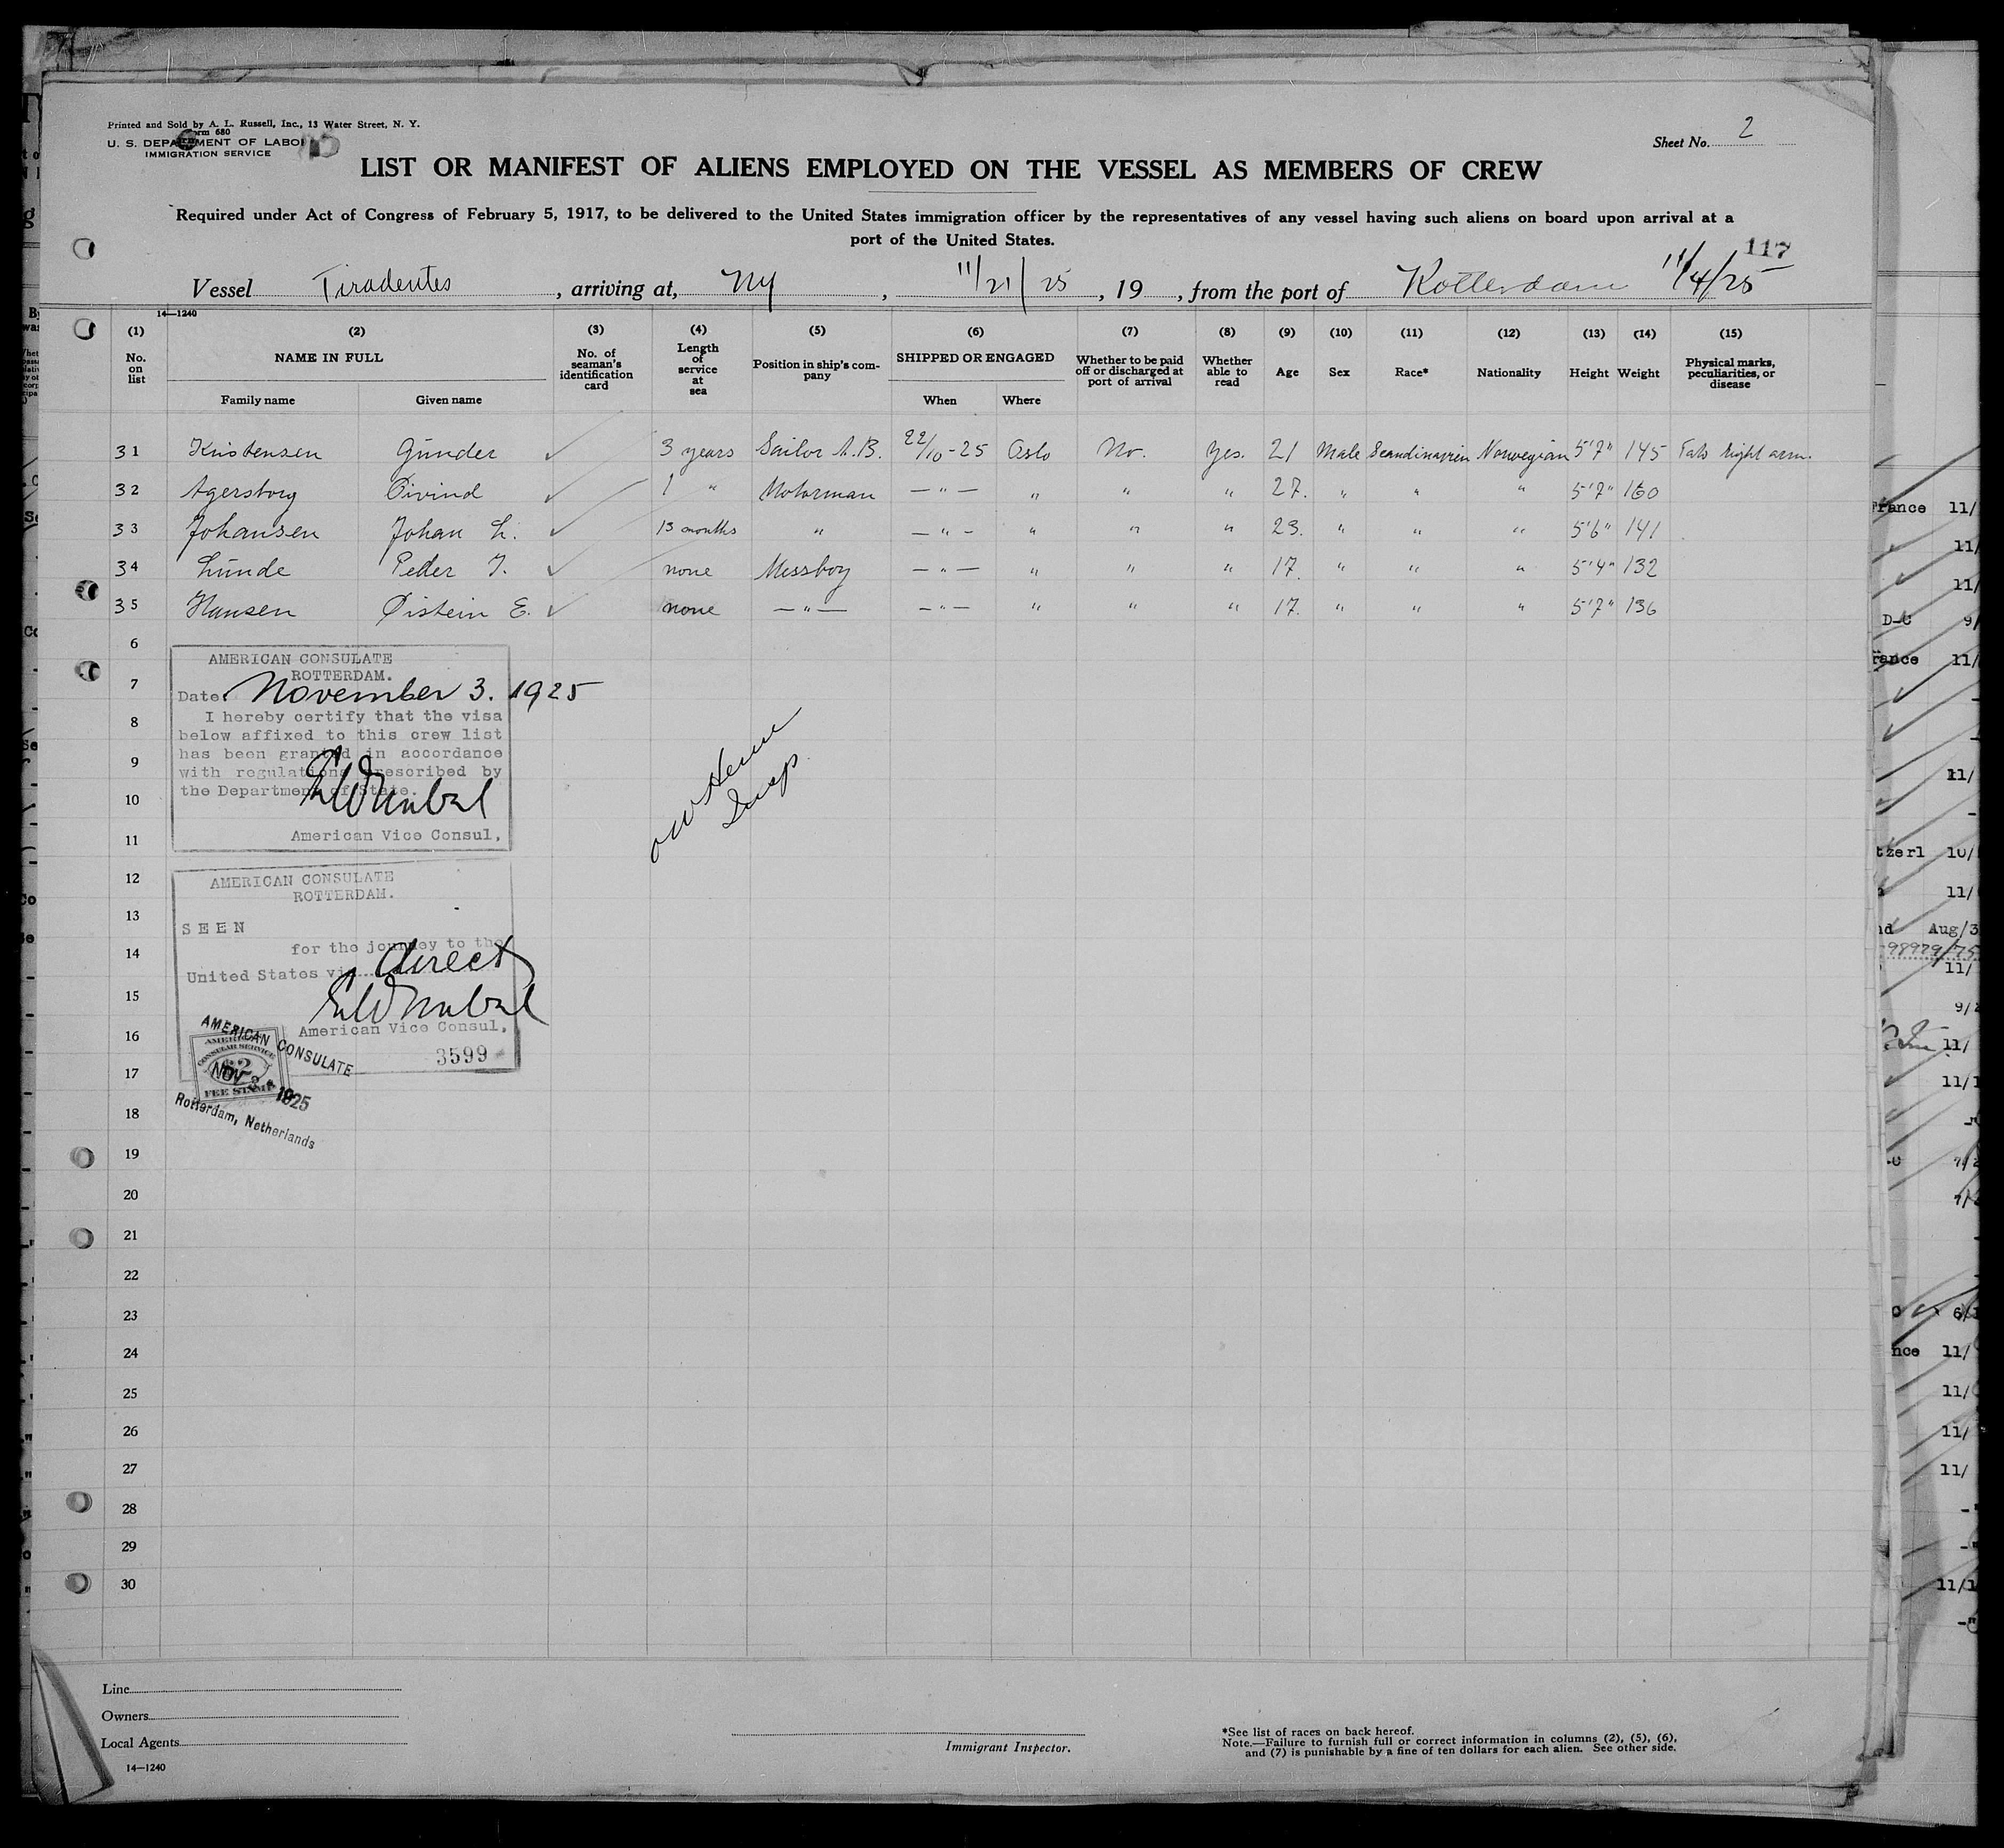 Printed and Sold by A. L. Russell, Inc., 13 Water Street, N. Y.
Form 680
U. S. DEPARTMENT OF LABOR
IMMIGRATION SERVICE
Sheet No. 2
LIST OR MANIFEST OF ALIENS EMPLOYED ON THE VESSEL AS MEMBERS OF CREW
Required under Act of Congress of February 5, 1917, to be delivered to the United States immigration officer by the representatives of any vessel having such aliens on board upon arrival at a
port of the United States.
117
Vessel Tiradentes, arriving at, NY, 11/21/25, 19, from the port of Rotterdam 11/4/25
14—1240
(1) (2) (3) (4) (5) (6) (7) (8) (9) (10) (11) (12) (13) (14) (15)
No. on list NAME IN FULL Family name Given name No. of seaman's identification card Length of service at sea Position in ship's company SHIPPED OR ENGAGED When Where Whether to be paid off or discharged at port of arrival Whether able to read Age Sex Race* Nationality Height Weight Physical marks, peculiarities, or disease
31 Kristensen Gunder 3 years Sailor A.B. 22/10-25 Oslo No. Yes. 21 Male Scandinavien Norwegian 5'7" 145 Tato right arm.
32 Agersborg Öivind 1 " Motorman — " — " " " 27. " " " 5'7" 160
33 Johansen Johan L. 13 months " — " — " " " 23. " " " 5'6" 141
34 Lunde Peder T. none Messboy — " — " " " 17. " " " 5'4" 132
35 Hansen Öistein E. none — " — — " — " " " 17. " " " 5'7" 136
6
AMERICAN CONSULATE
ROTTERDAM.
7
Date. November 3. 1925
8
I hereby certify that the visa
below affixed to this crew list
9
has been granted in accordance
with regulations prescribed by
10
the Department of State.
11
American Vice Consul,
12
AMERICAN CONSULATE
ROTTERDAM.
13
SEEN
14
for the journey to the
United States via direct
15
16
American Vice Consul,
3599
AMERICAN CONSULATE
AMERICAN
CONSULAR SERVICE
$2
FEE STAMP
17
NOV 3 - 1925
Rotterdam, Netherlands
18
19
20
21
22
23
24
25
26
27
28
29
30
Line
Owners
Local Agents
14—1240
Immigrant Inspector.
*See list of races on back hereof.
Note.—Failure to furnish full or correct information in columns (2), (5), (6),
and (7) is punishable by a fine of ten dollars for each alien. See other side.